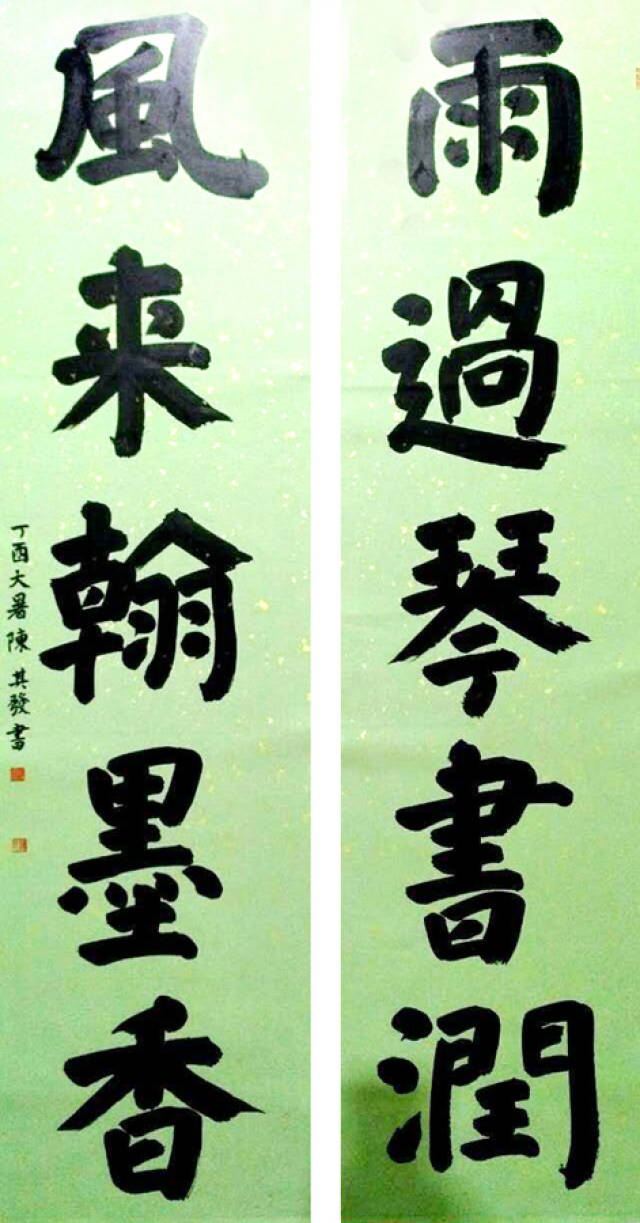 雨過琴書潤
風来翰墨香
丁酉大暑陳其發書